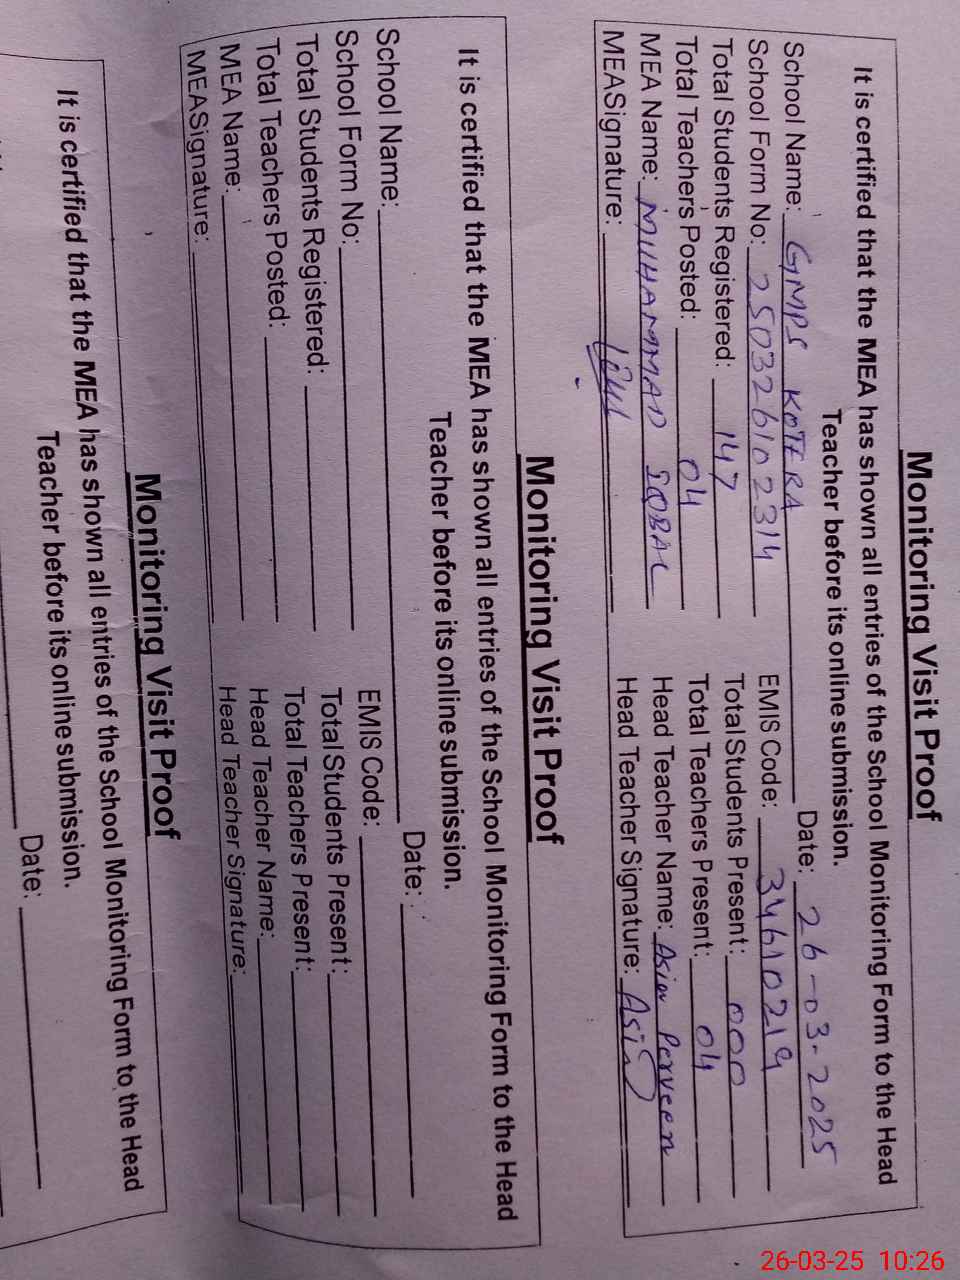 Monitoring Visit Proof
It is certified that the MEA has shown all entries of the School Monitoring Form to the Head
Teacher before its online submission.
School Name: GMPS KOTERA Date: 26-03-2025
School Form No: 250326102314 EMIS Code: 34610219
Total Students Registered: 147 Total Students Present: 000
Total Teachers Posted: 04 Total Teachers Present: 04
MEA Name: MUHAMMAD IQBAL Head Teacher Name: Asia Perveen
MEASignature: Head Teacher Signature: Asia
Monitoring Visit Proof
It is certified that the MEA has shown all entries of the School Monitoring Form to the Head
Teacher before its online submission.
School Name: Date:
School Form No: EMIS Code:
Total Students Registered: Total Students Present:
Total Teachers Posted: Total Teachers Present:
MEA Name: Head Teacher Name:
MEASignature: Head Teacher Signature:
Monitoring Visit Proof
It is certified that the MEA has shown all entries of the School Monitoring Form to the Head
Teacher before its online submission.
Date:
26-03-25 10:26